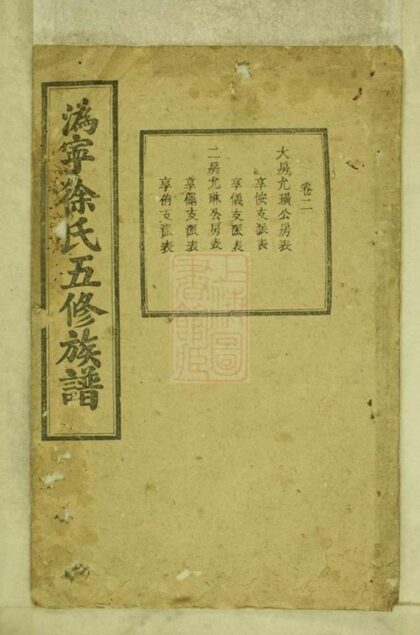 溈寧徐氏五修族譜
卷二
大房尤璜公房表
享侒支派表
享儀支派表
二房尤琳公房表
享儒支派表
享脩支派表
上海圖書館藏